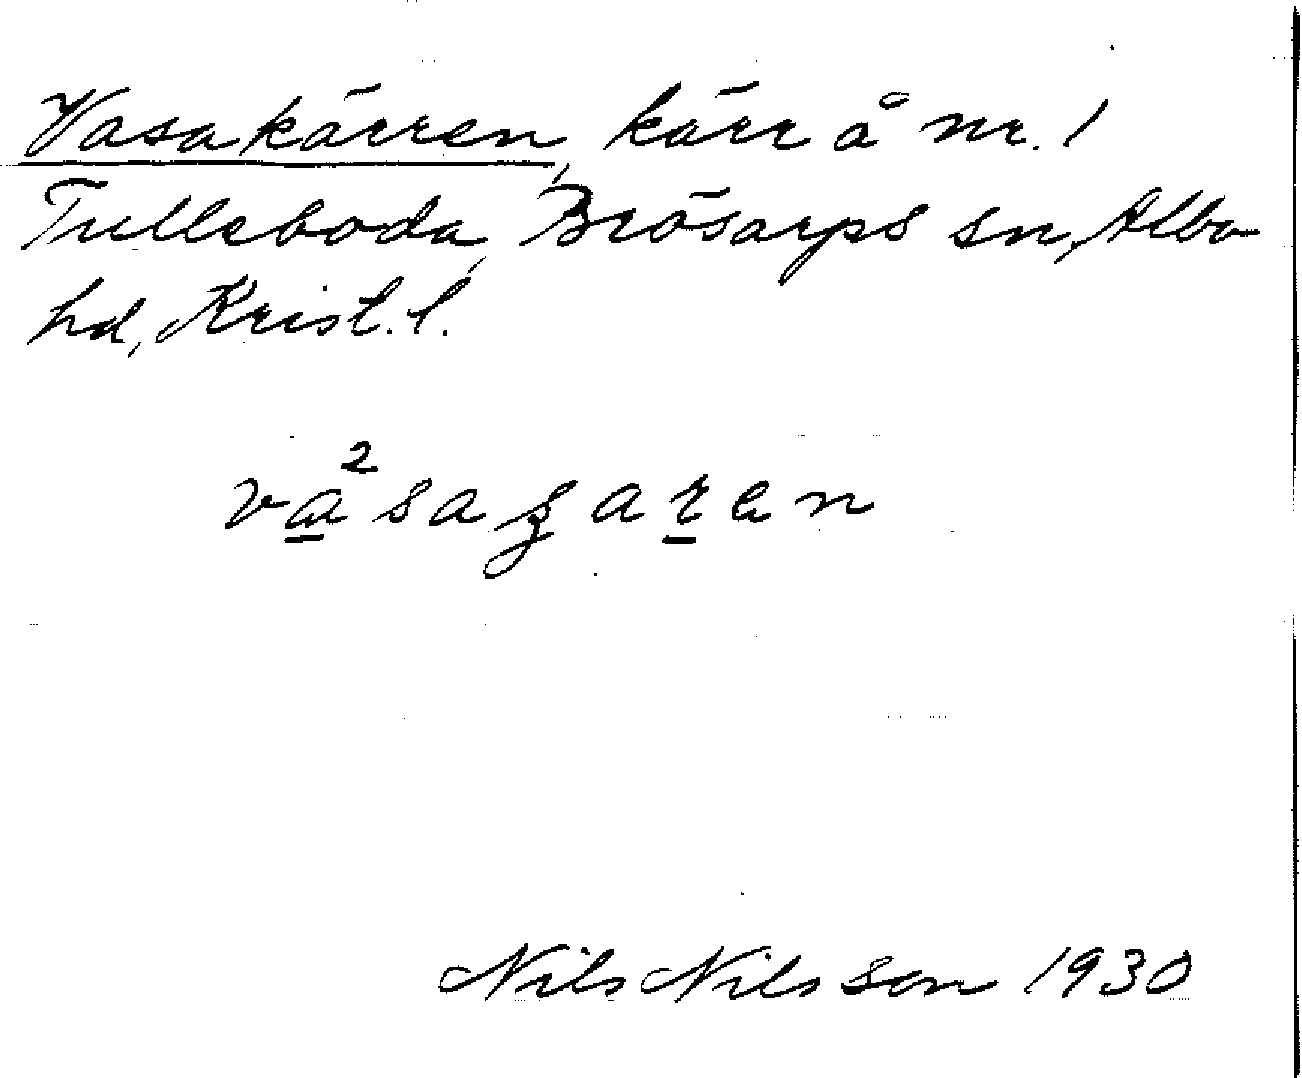 Vasakärren, kärr å nr. 1
Tulleboda, Brösarps sn, Albo
hd, Krist. l.
va²saʒaren
Nils Nilsson 1930